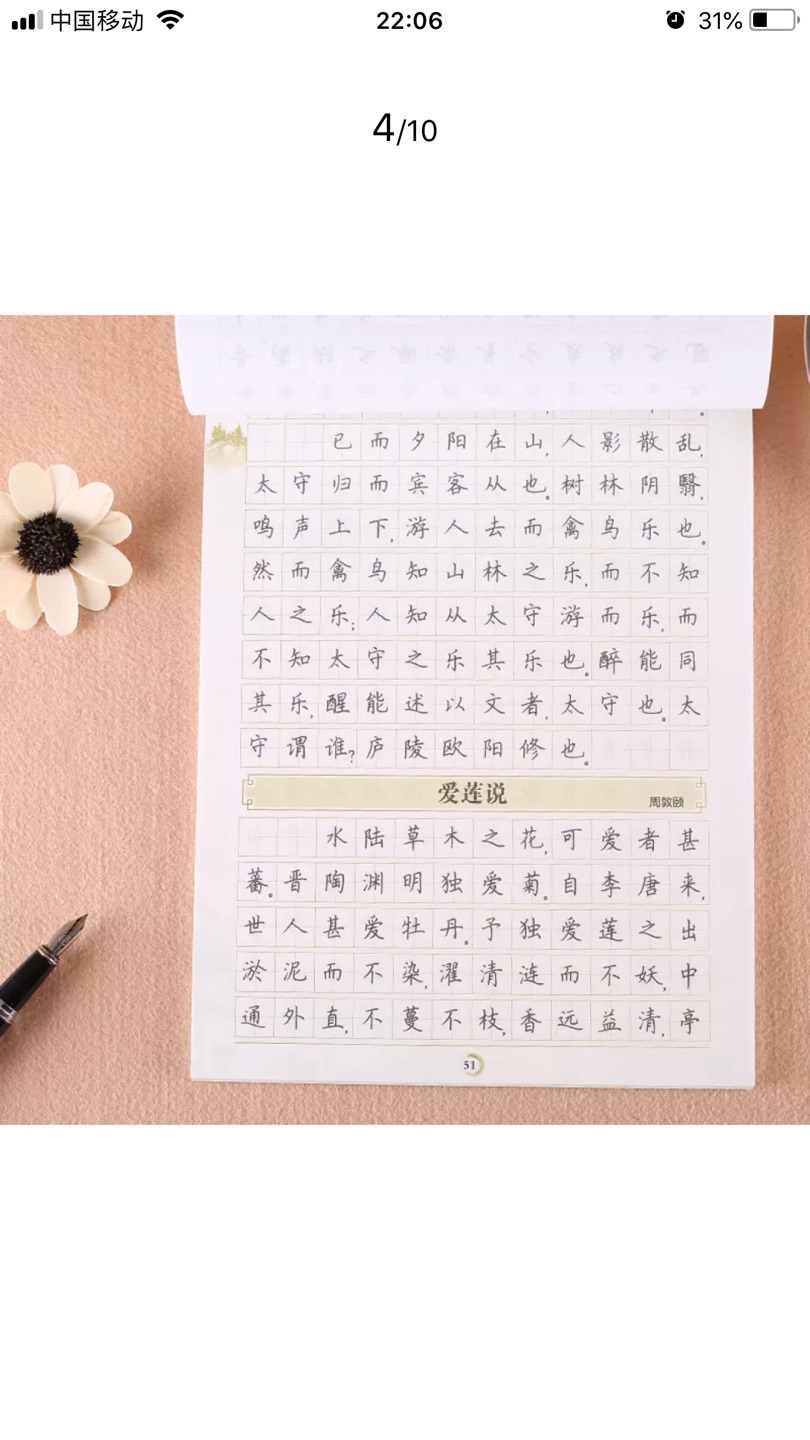 中国移动 22:06 31%
4/10
已而夕阳在山,人影散乱,
太守归而宾客从也。树林阴翳,
鸣声上下,游人去而禽鸟乐也。
然而禽鸟知山林之乐,而不知
人之乐;人知从太守游而乐,而
不知太守之乐其乐也。醉能同
其乐,醒能述以文者,太守也。太
守谓谁?庐陵欧阳修也。
爱莲说
周敦颐
水陆草木之花,可爱者甚
蕃。晋陶渊明独爱菊。自李唐来,
世人甚爱牡丹。予独爱莲之出
淤泥而不染,濯清涟而不妖,中
通外直,不蔓不枝,香远益清,亭
51